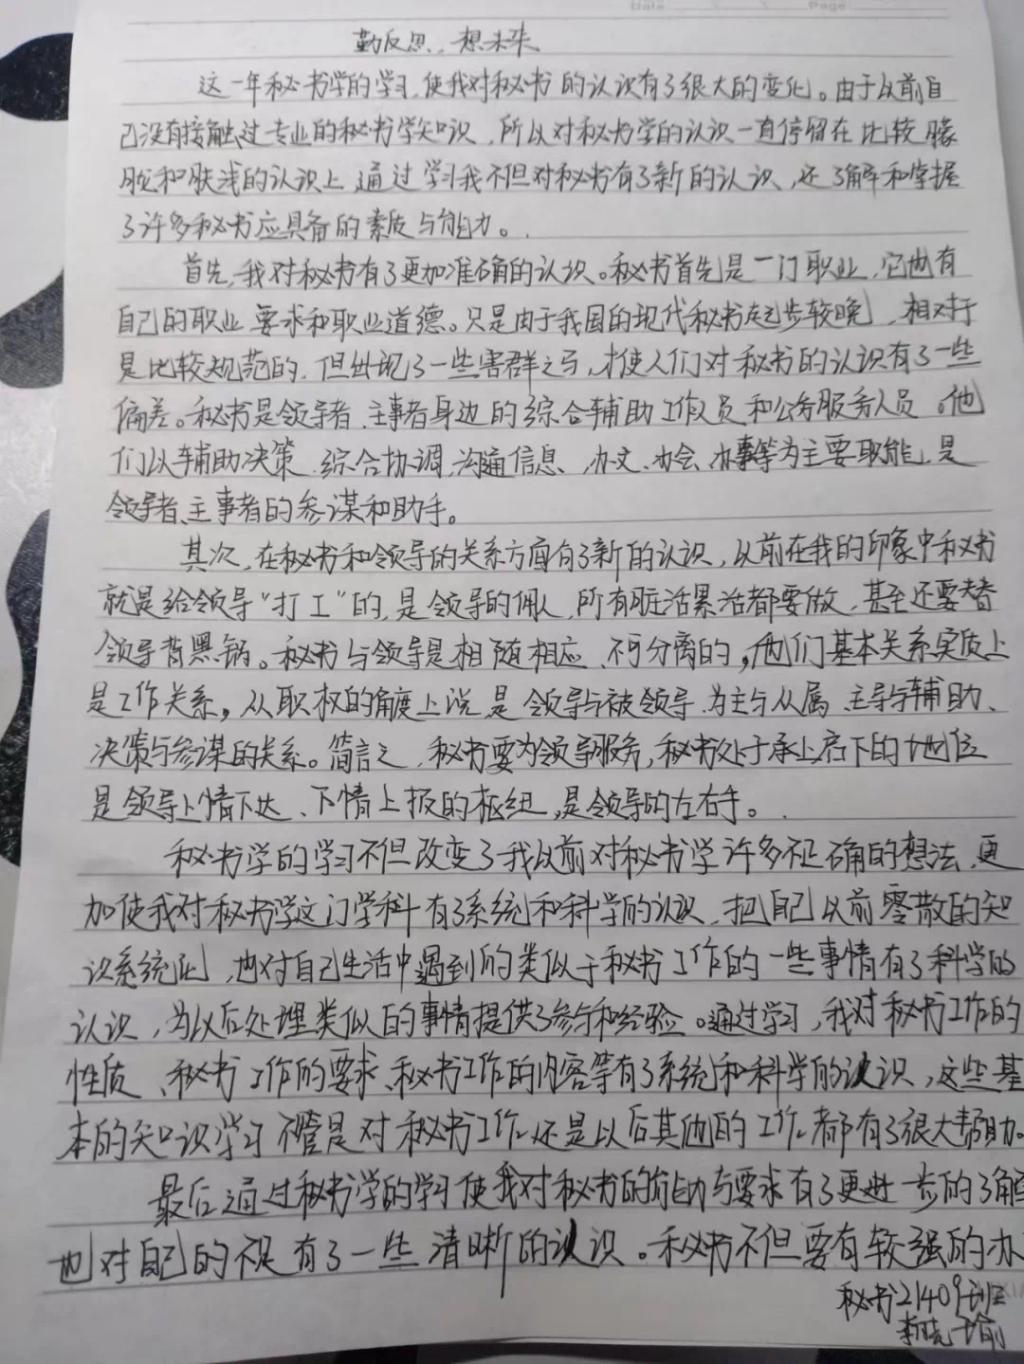 Date Page
勤反思,想未来
这一年秘书学的学习,使我对秘书的认识有了很大的变化。由于以前自
己没有接触过专业的秘书学知识,所以对秘书学的认识一直停留在比较朦
胧和肤浅的认识上,通过学习我不但对秘书有了新的认识,还了解和掌握
了许多秘书应具备的素质与能力。
首先,我对秘书有了更加准确的认识。秘书首先是一门职业,它也有
自己的职业要求和职业道德。只是由于我国的现代秘书起步较晚,相对于
是比较规范的,但出现了一些害群之马,才使人们对秘书的认识有了一些
偏差。秘书是领导者、主事者身边的综合辅助工作人员和公务服务人员。他
们以辅助决策、综合协调、沟通信息、办文、办会、办事等为主要职能,是
领导者、主事者的参谋和助手。
其次,在秘书和领导的关系方面有了新的认识,以前在我的印象中秘书
就是给领导“打工”的,是领导的佣人,所有脏活累活都要做,甚至还要替
领导背黑锅。秘书与领导是相随相应、不可分离的,他们基本关系实质上
是工作关系,从职权的角度上说,是领导与被领导、为主与从属、主导与辅助、
决策与参谋的关系。简言之,秘书要为领导服务,秘书处于承上启下的地位
是领导上情下达、下情上报的枢纽,是领导的左右手。
秘书学的学习不但改变了我以前对秘书学许多不正确的想法,更
加使我对秘书学这门学科有了系统和科学的认识,把自己以前零散的知
识系统化,也对自己生活中遇到的类似于秘书工作的一些事情有了科学的
认识,为以后处理类似的事情提供了参与和经验。通过学习,我对秘书工作的
性质、秘书工作的要求、秘书工作的内容等有了系统和科学的认识,这些基
本的知识学习不管是对秘书工作还是以后其他的工作都有了很大帮助。
最后通过秘书学的学习使我对秘书的能力与要求有了更进一步的了解
也对自己的不足有了一些清晰的认识。秘书不但要有较强的办
秘书21409班